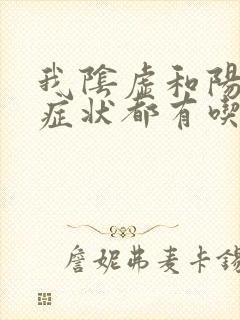 我陰虛和陽
症狀都有喫
詹妮弗麦卡錫